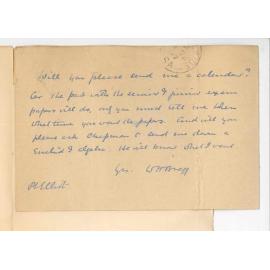 Will you please send me a calendar?
Or the part with the senior & junior exam
papers will do, only you must tell me when
what time you want the papers. And will you
please ask Chapman to send me down a
Euclid & Algebra. He will know what I want
Yrs. WHBragg
Pt Elliot